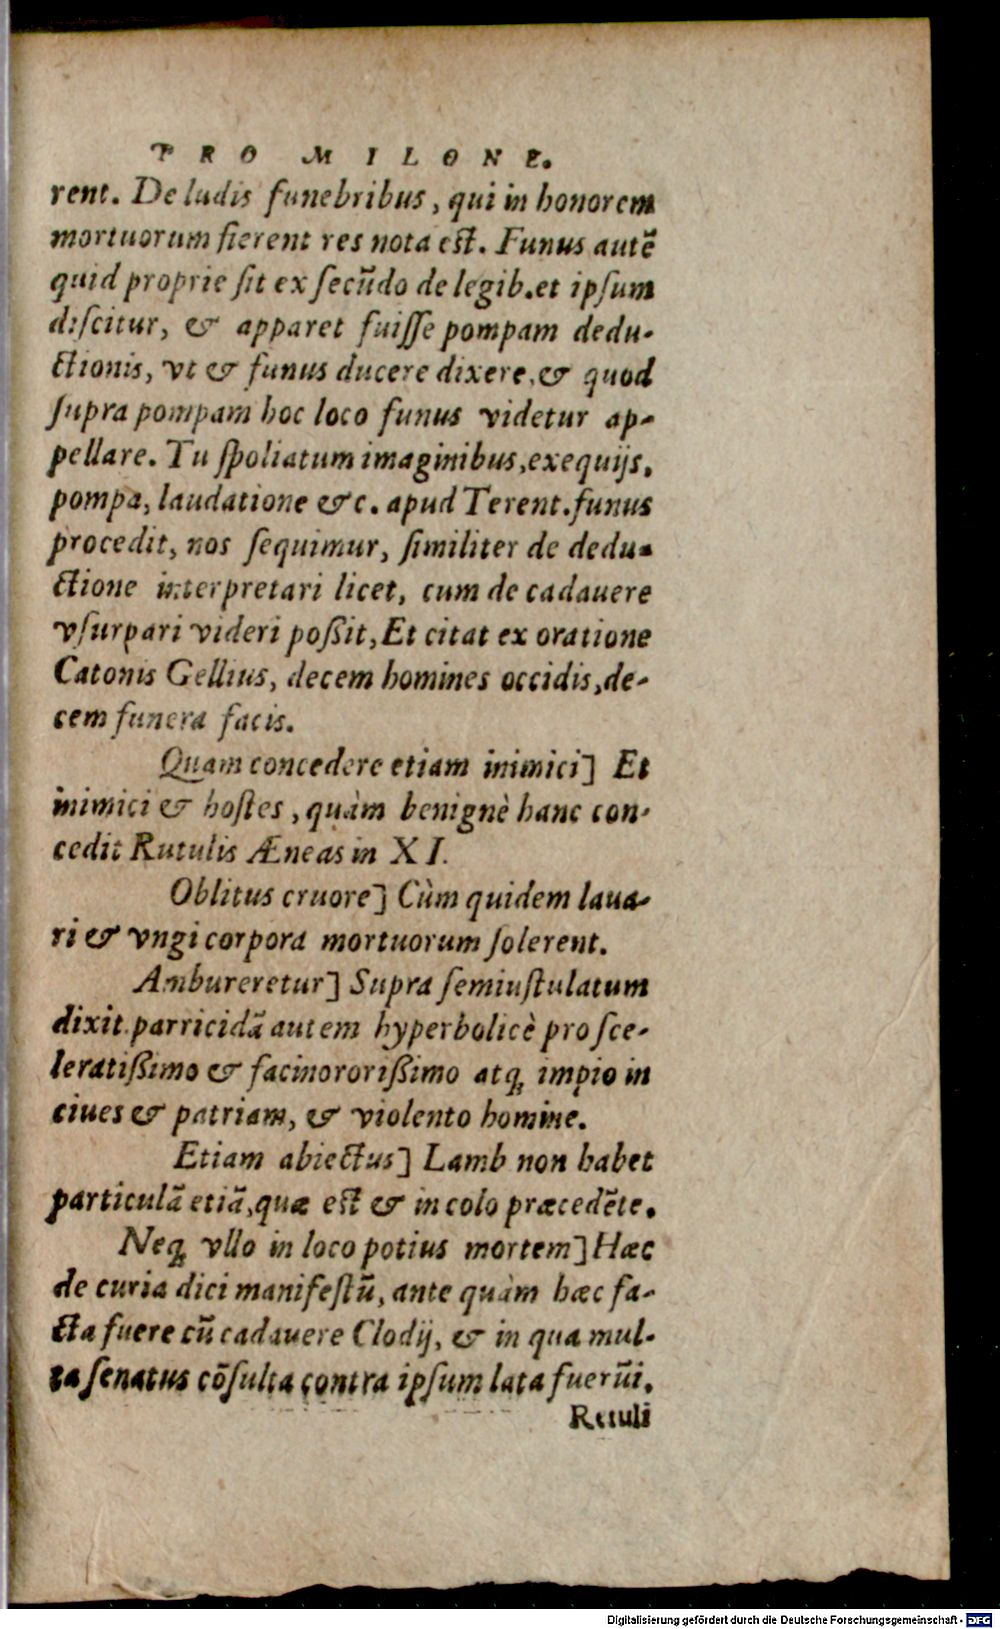 PRO MILONE.
rent. De ludis funebribus, qui in honorem
mortuorum fierent res nota est. Funus autē
quid proprie ſit ex ſecūdo de legib. et ipſum
diſcitur, & apparet fuiſſe pompam dedu-
ctionis, vt & funus ducere dixere, & quod
ſupra pompam hoc loco funus videtur ap-
pellare. Tu ſpoliatum imaginibus, exequijs,
pompa, laudatione &c. apud Terent. funus
procedit, nos ſequimur, ſimiliter de dedu-
ctione interpretari licet, cum de cadauere
vſurpari videri poßit, Et citat ex oratione
Catonis Gellius, decem homines occidis, de-
cem funera facis.
Quam concedere etiam inimici] Et
inimici & hoſtes, quàm benignè hanc con-
cedit Rutulis Æneas in XI.
Oblitus cruore] Cùm quidem laua-
ri & vngi corpora mortuorum ſolerent.
Ambureretur] Supra ſemiuſtulatum
dixit. parricidā autem hyperbolicè pro ſce-
leratißimo & facinororißimo atq; impio in
ciues & patriam, & violento homine.
Etiam abiectus] Lamb non habet
particulā etiā, quæ est & in colo præcedēte.
Neq; vllo in loco potius mortem] Hæc
de curia dici manifeſtū, ante quàm hæc fa-
cta fuere cū cadauere Clodij, & in qua mul-
ta ſenatus cōſulta contra ipſum lata fuerūt.
Retuli
Digitalisierung gefördert durch die Deutsche Forschungsgemeinschaft - DFG